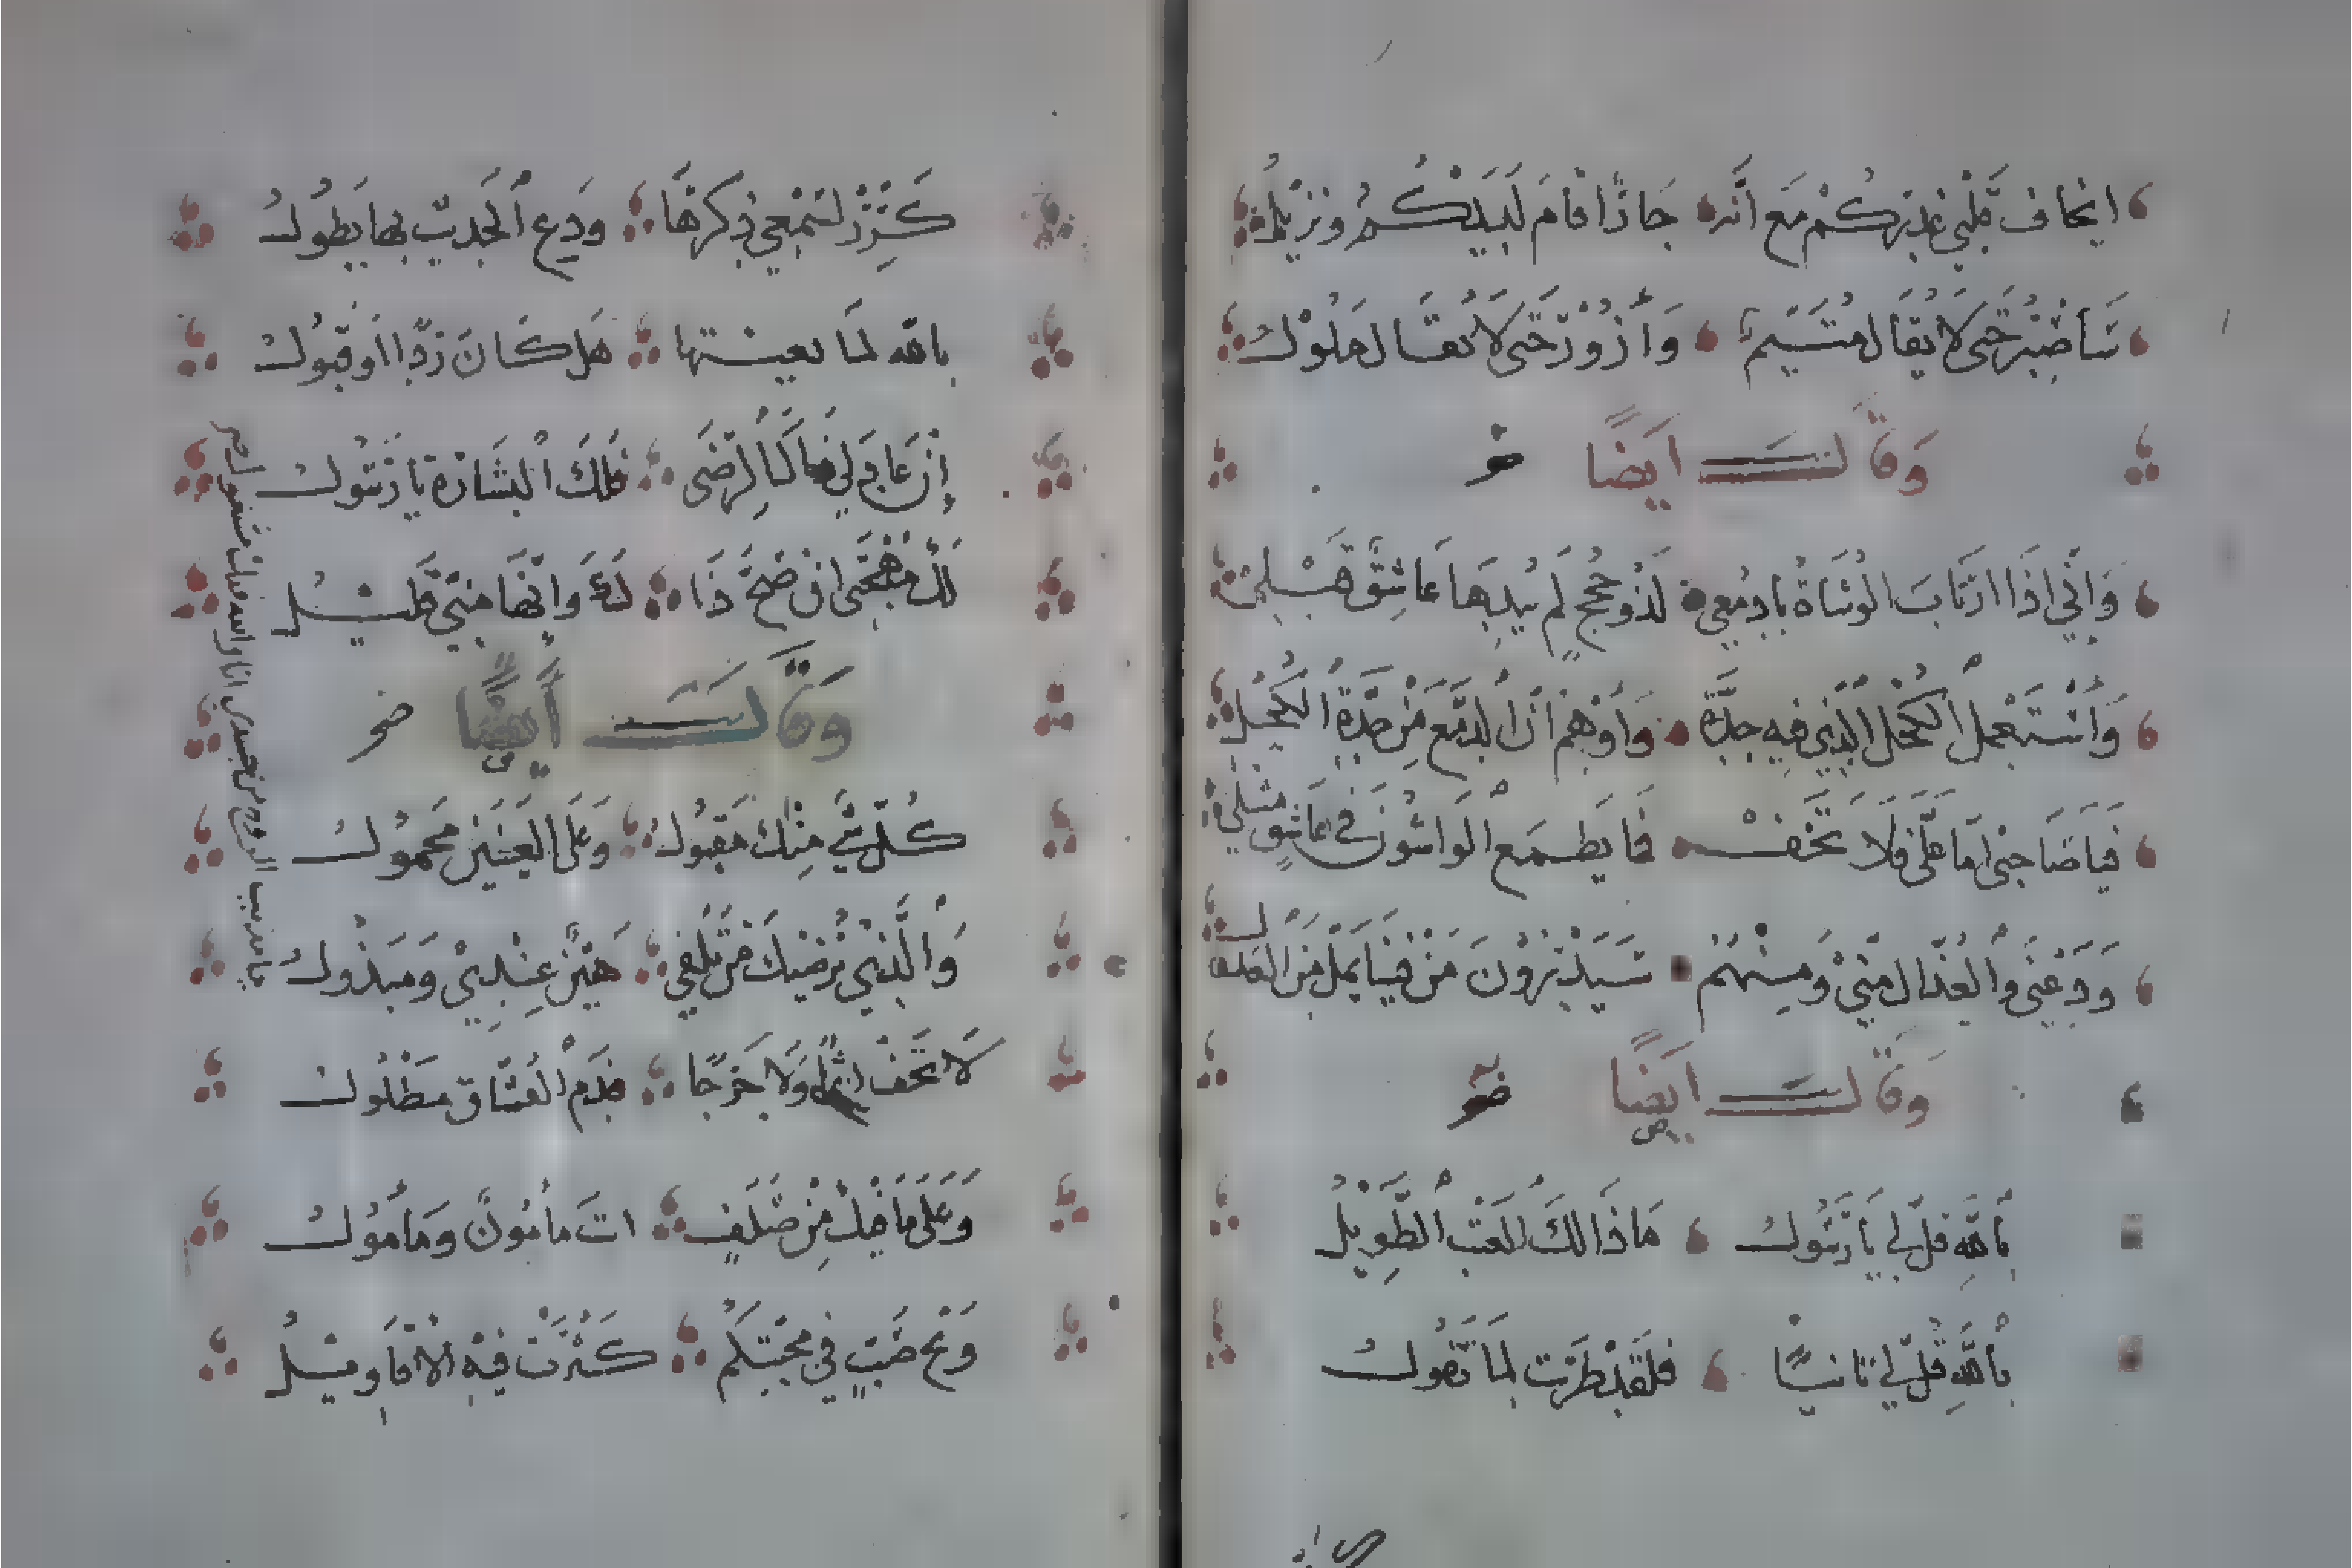 ايخاف قلبي غدركم مع انه جار اقام لديكم ونزيل
سأصبر حتى لا يقال متيم وأزور حتى لا يقال ملول
وقال أيضًا
وإني إذا ارتاب الوشاة بأدمعي لذو حجج لم يبدها عاشق قبلي
وأستعمل الكحل الذي فيه حدة وأوهم ان الدمع من حدة الكحل
فيا صاحبي اما علي فلا تخف فما يطمع الواشون في عاشق مثلي
ودعني والعذال مني ومنهم سيدرون من منا يمل من العذل
وقال أيضًا
بالله قل لي يا رسول ما ذا لك العتب الطويل
بالله قل لي ثانيا فلقد طربت لما تقول
كرر لسمعي ذكرها ودع الحديث بها يطول
بالله لما بعينتها هل كان ردا او قبول
إن عاد لي ذاك الرضى فلك البشارة يا رسول
لك مهجتي ان صح ذا لك وانها مني قليل
وقال أيضًا
كل شي منك مقبول وعلى العينين محمول
والذي يرضيك من تلفي هين عندي ومبذول
لا تخف اثما ولا حرجا فدم العشاق مطلول
وعلى ما فيك من صلف انت مأمون ومأمول
ويح صب في محبتكم كثرت فيه الاقاويل